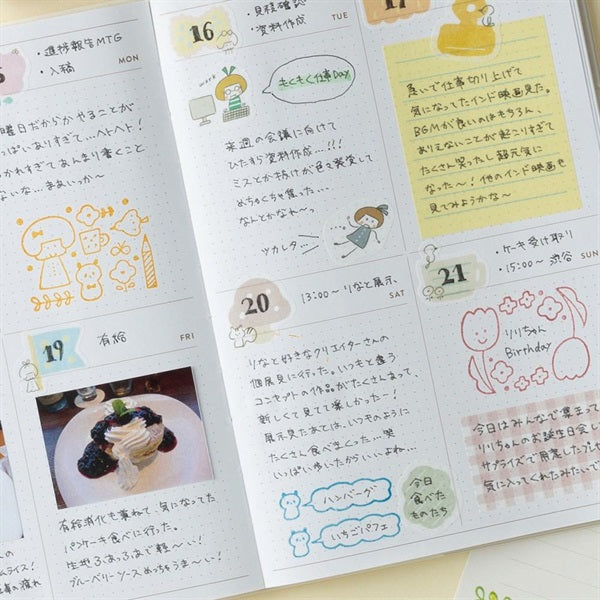 ・進捗報告MTG
・入稿
MON
曜日だからかやることが
っぱいありすぎて…ヘトヘト!
かれすぎてあんまり書くこと
ないな…まあいっか〜
16
・見積確認
・資料作成
TUE
work
もくもく仕事Day
来週の会議に向けて
ひたすら資料作成…!!!
ミスとか抜けが色々発覚して
めちゃくちゃ焦った…
なんとかなれ〜っ
ツカレタ…
17
急いで仕事切り上げて
気になってたインド映画見た。
BGMが良いのはもちろん、
ありえないことが起こりすぎて
たくさん笑ったし超元気に
なった〜! 他のインド映画も
見てみようかな〜
19
有給
FRI
有給消化も兼ねて、気になってた
パンケーキ食べに行った。
生地ふあっふあで軽〜い!
ブルーベリーソースめっちゃうま〜い!
20
13:00〜 りなと展示、
SAT
りなと好きなクリエイターさんの
個展見に行った。いつもと違う
コンセプトの作品がたくさんあって、
新しくて見てて楽しかった〜!
展示見たあとは、いつものように
たくさん食べまくった…笑
いっぱい歩いたからいいよね…
ハンバーグ
いちごパフェ
今日
食べた
ものたち
21
・ケーキ受け取り
・15:00〜 渋谷
SUN
りりちゃん
Birthday
今日はみんなで集まって
りりちゃんのお誕生日会し
サプライズで用意したプレ
気に入ってくれたみたいで